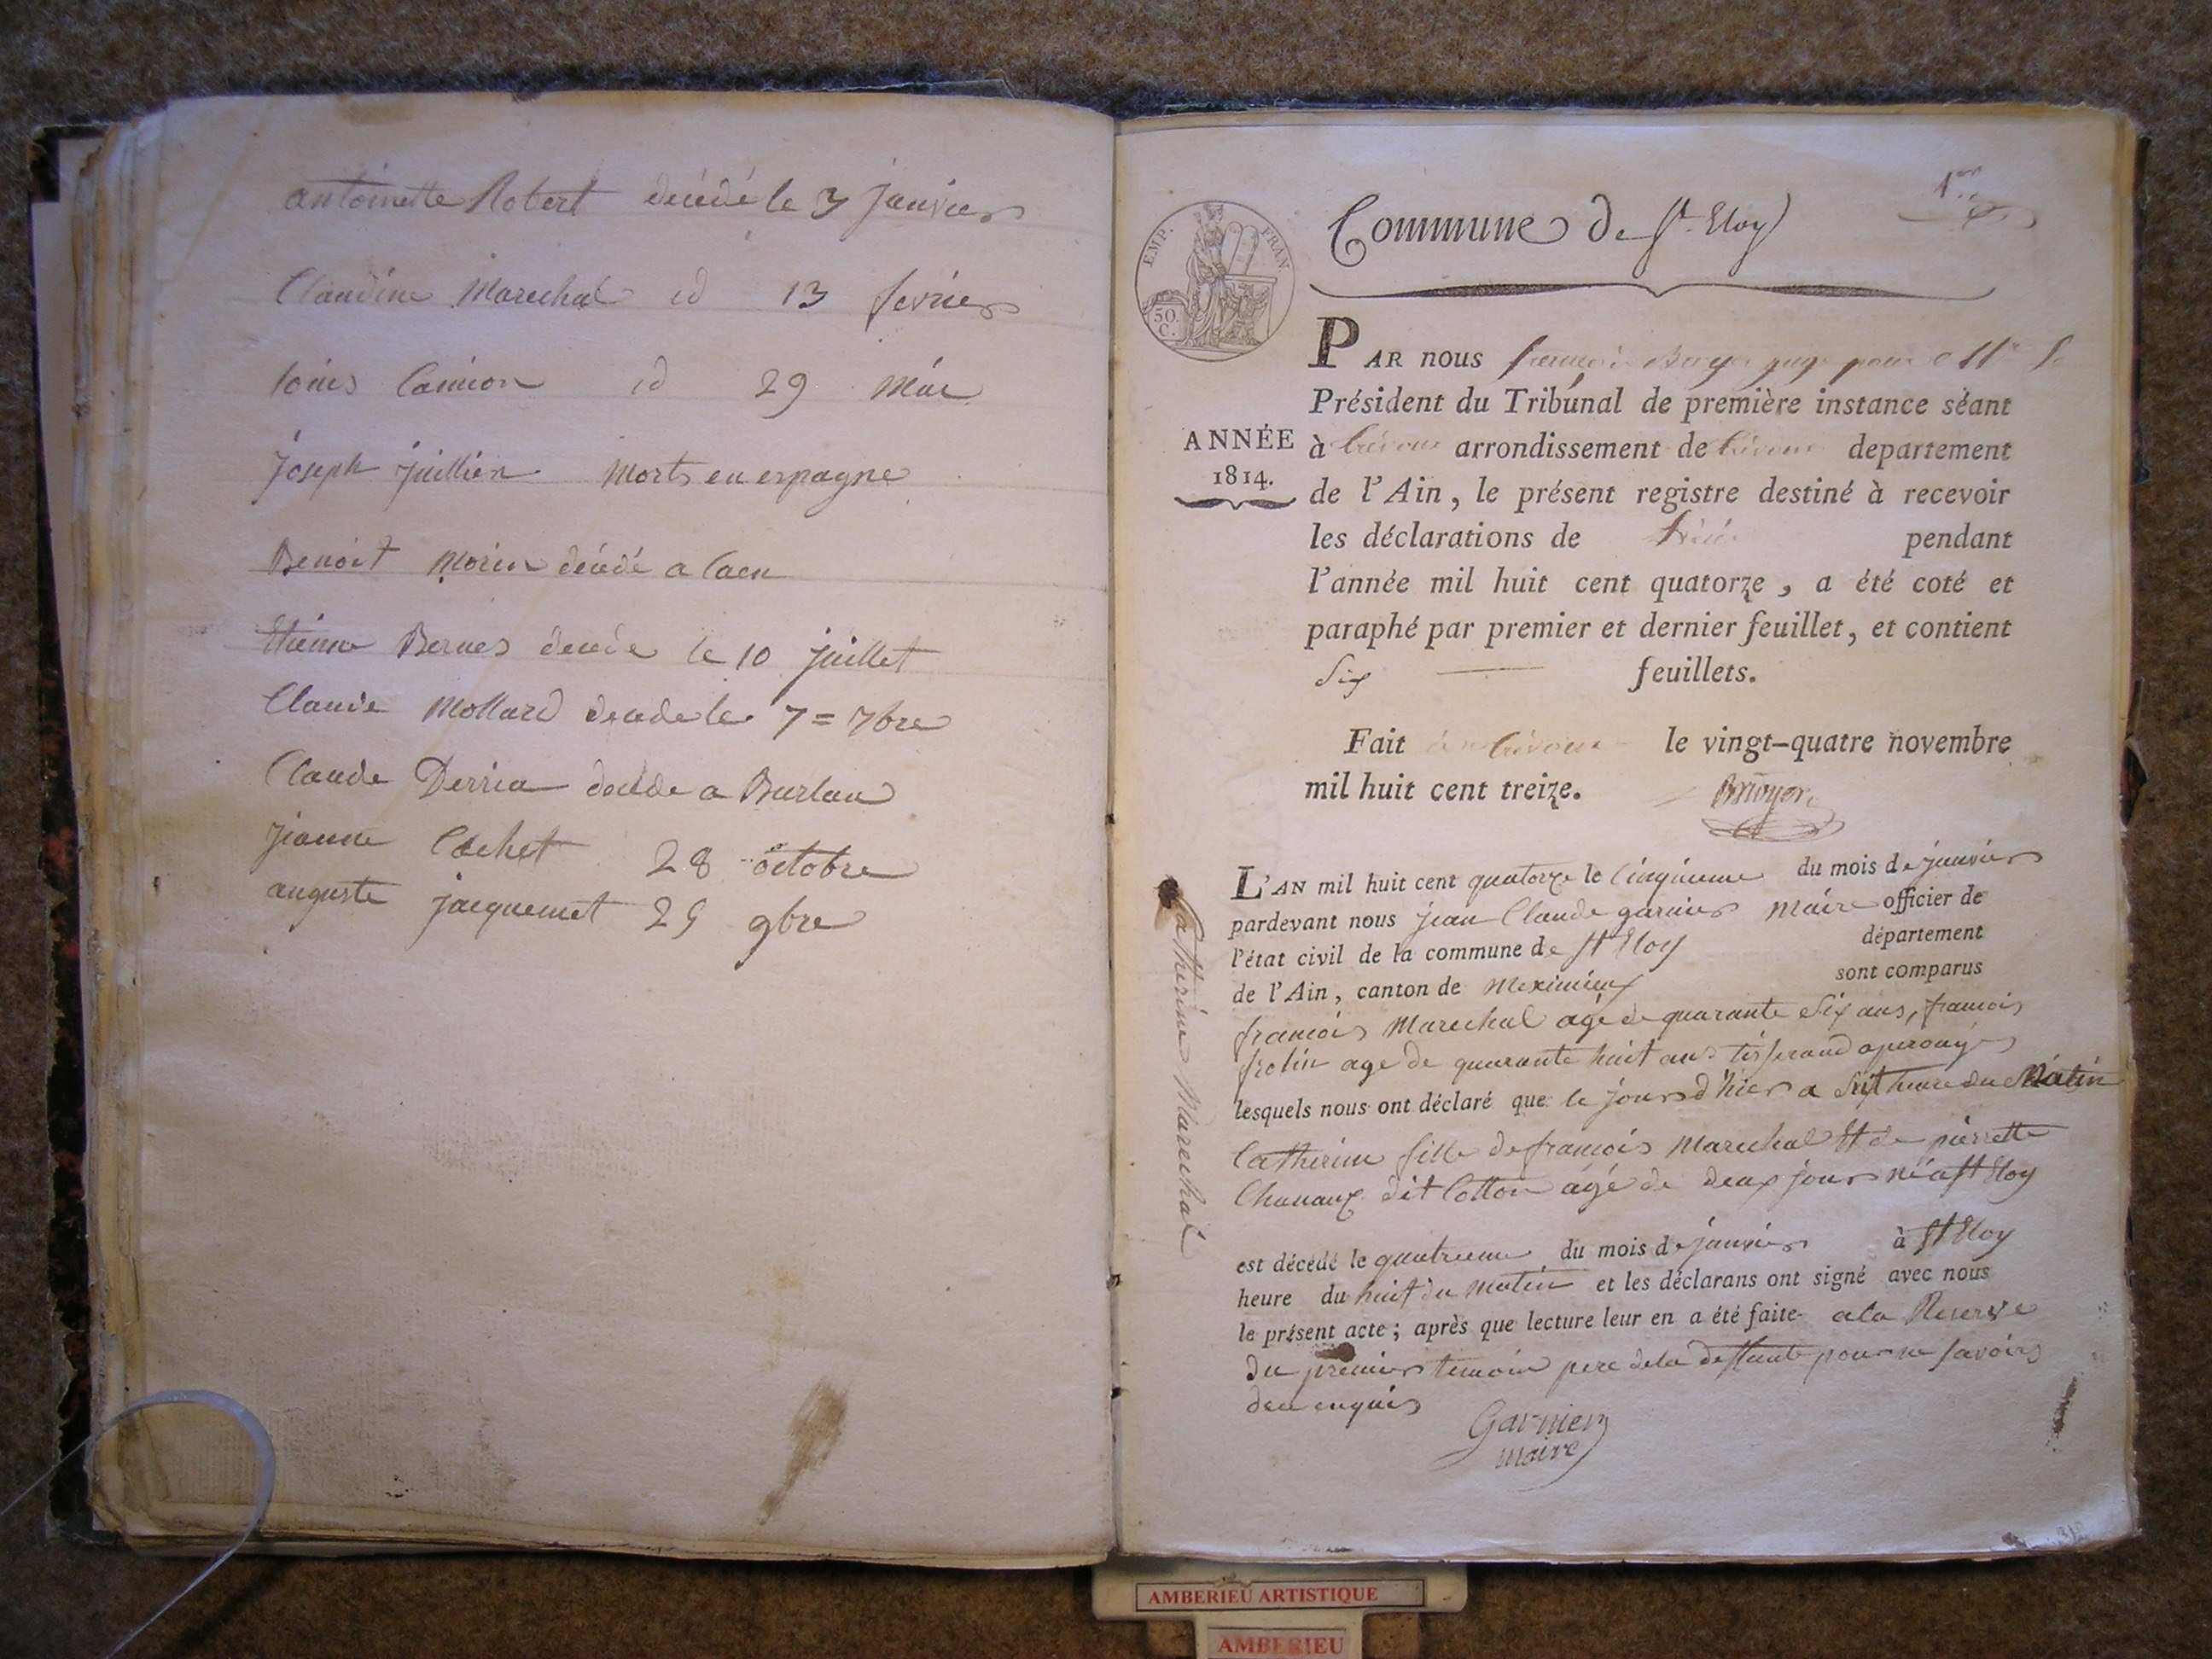 antoinette Robert décédé le 3 janvier
Claudine Marechal id 13 fevrier
louis Camion id 29 Mai
Joseph juillien Morts en espagne
Benoit Morin décédé a Caen
Etienne Bernes décédé le 10 juillet
Claude Mollard decede le 7 = 7bre
Claude Perria décédé a Burlan
jeanne Cochet 28 octobre
auguste jacquemet 29 9bre
1er
Commune de St. Eloy
EMP. FRAN
50.
C.
PAR nous françois juge pour Mr le
Président du Tribunal de première instance séant
ANNÉE
1814.
à trévoux arrondissement de trévoux departement
de l'Ain, le présent registre destiné à recevoir
les déclarations de pendant
l'année mil huit cent quatorze, a été coté et
paraphé par premier et dernier feuillet, et contient
Six feuillets.
Fait à trévoux le vingt-quatre novembre
mil huit cent treize.
L'AN mil huit cent quatorze le Cinquieme du mois de janvier
pardevant nous jean Claude garnier Maire officier de
l'état civil de la commune de St Eloy département
de l'Ain, canton de Meximieux sont comparus
francois Marechal agé de quarante Six ans, francois
frolin age de quarante huit ans tisserand a perouges
lesquels nous ont déclaré que le jours d'hier a huit heure du Matin
Catherine fille de francois Marechal Et de pierrette
Chanaux dit Cotton agé de deux jours né a St Eloy
est décédé le quatrieme du mois de janvier à St Eloy
heure du huit du Matin et les déclarans ont signé avec nous
le présent acte; après que lecture leur en a été faite a la Reserve
du premier temoin pere dela deffunte pour ne savoir
deu enquis
Garnier
maire
Catherine Marechal
AMBERIEU ARTISTIQUE
AMBERIEU